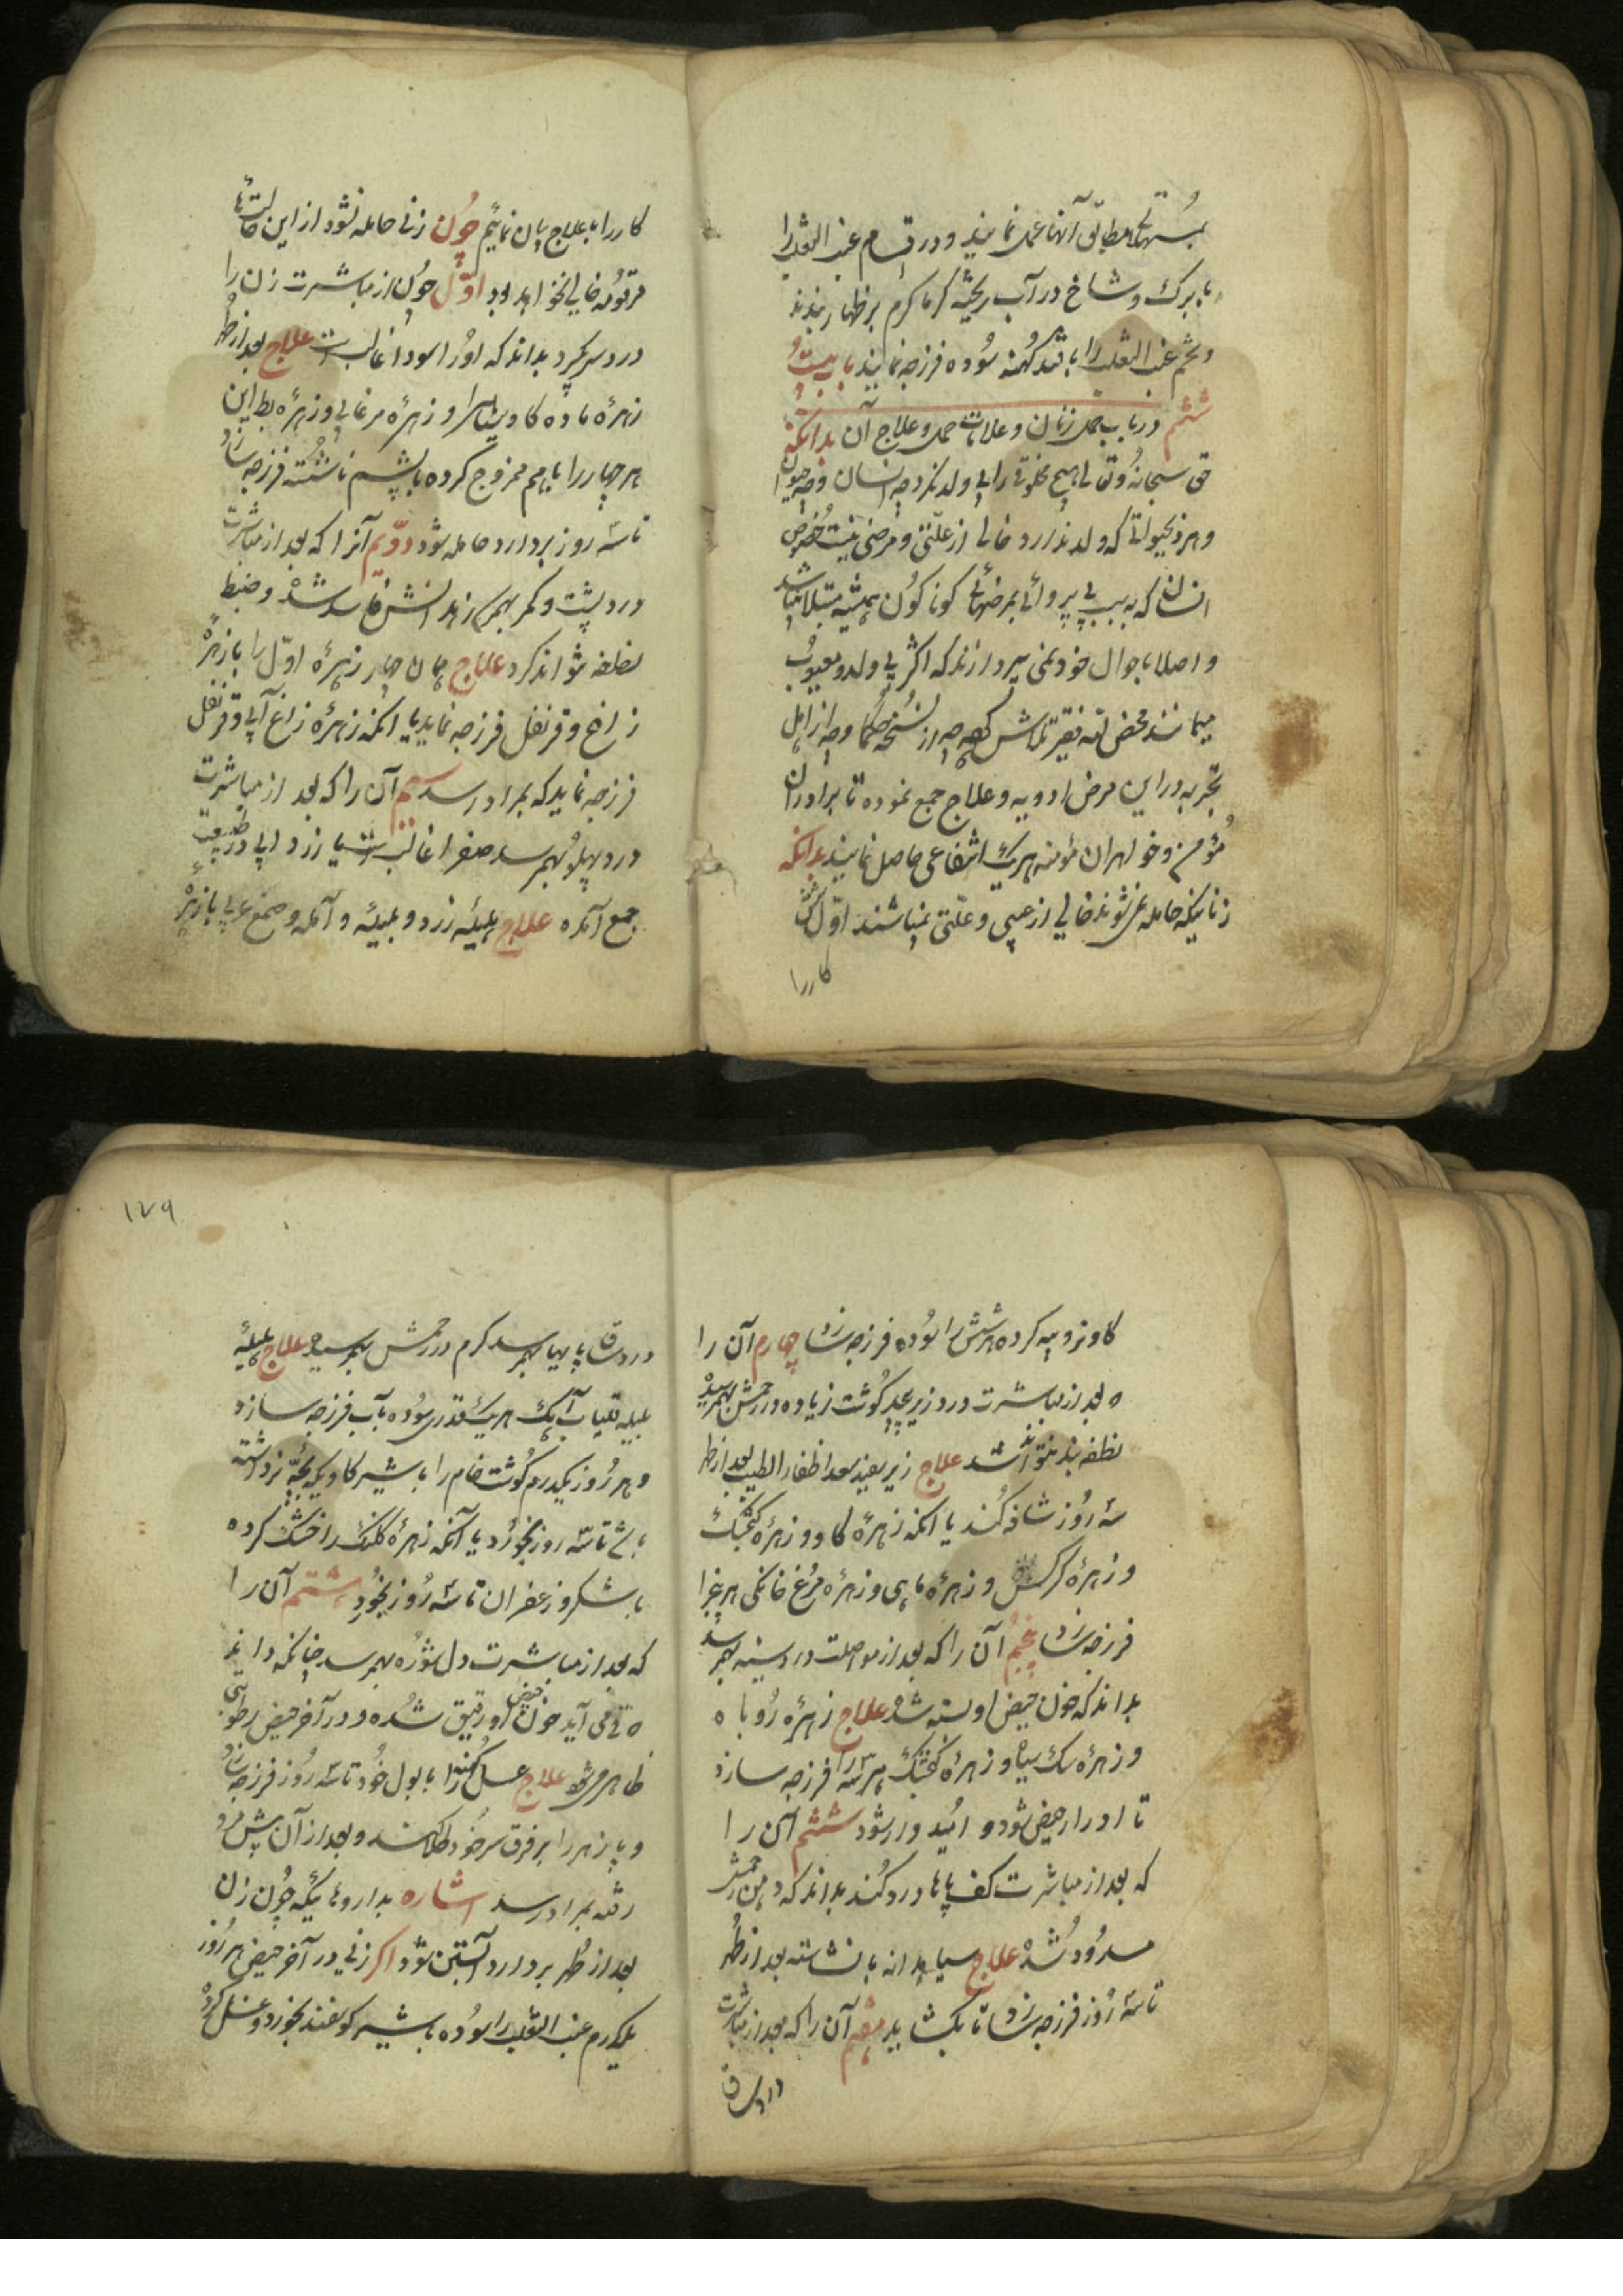 بُستهای مطابق آنها عمل نمایند و در اقسام عنب الثعلب را
با برگ و شاخ در آب ریخته گرما گرم بر ظهار بندند
و تخم عنب الثعلب را با قند کهنه سوده فرزجه نمایند باب بیست و
ششم در باب حمل زنان و علامات حمل و علاج آن بدانکه
حق سبحانه و تعالی هیچ مخلوقی را بی ولد نکرد چه انسان و چه حیوان
و هر ذیحیوانی که ولد ندارد خالی از علتی و مرضی نیست خصوص
انسان که به سبب بی پروائی بمرضهای گوناگون همیشه مبتلا میباشد
و اصلا باحوال خود نمی پردازند که اکثر بی ولد و معیوب
میمانند محض لله فقیر تلاش کرده چه از نسخه حکما و چه از اهل
تجربه در این مرض ادویه و علاج جمع نموده تا برادران
مؤمن و خواهران مؤمنه هر یک انتفاعی حاصل نمایند بدانکه
زنانیکه حامله نمی شوند خالی از عیبی و علتی نمیباشند اول
کار را
کار را با علاج بیان نمائیم چون زنی حامله نشود از این حالتهای
مرقومه خالی نخواهد بود اول چون از مباشرت زن را
درد سر گیرد بداند که او را سودا غالب است علاج بعد از طهر
زهرهٔ ماده گاو و زهرهٔ مرغابی و زهرهٔ بط این
هر چهار را باهم ممزوج کرده با پشم ناشسته فرزجه سازد
تا سه روز بردارد حامله شود دویم آنرا که بعد از مباشرت
درد پشت و کمر بهم رسد زهدانش فاسد شده و ضبط
نطفه نتواند کرد علاج همان چهار زهرهٔ اول را با زهرهٔ
زاغ و قرنفل فرزجه نماید یا آنکه زهرهٔ زاغ آبی و قرنفل
فرزجه نماید که بمراد رسد سیم آن را که بعد از مباشرت
درد پهلو بهم رسد صفرا غالب است یا زرد آبی در طبیعت
جمع آمده علاج هلیلهٔ زرد و بلیله و آمله و صمغ عربی با زهرهٔ
گاو نر و پیه گرده هر شش را سوده فرزجه سازد چهارم آن را
ه بعد از مباشرت درد زیر جلد گوشت زیاده در رحمش بهم رسیده
نطفه بند نتواند شد علاج زیره سفید سعد اظفار الطیب بعد از طهر
سه روز شافه کند یا آنکه زهرهٔ گاو و زهرهٔ گنجشک
و زهرهٔ کرکس و زهرهٔ ماهی و زهرهٔ مرغ خانگی هر پنج را
فرزجه سازد پنجم آن را که بعد از مواصلت درد سینه بهم رسد
بداند که خون حیض او بسته شده علاج زهرهٔ روباه
و زهرهٔ سگ سیاه و زهرهٔ گنجشک هر سه را فرزجه سازد
تا ادرار حیض شود و امیدوار شود ششم آن را
که بعد از مباشرت کف پاها درد کند بداند که دهن رحمش
مسدود شده علاج سیاهدانه با نشاسته بعد از طهر
تا سه روز فرزجه سازد تا بگشاید هفتم آن را که بعد از مباشرت
درد ساق
۱۷۹
درد ساق پایها بهم رسد کرم در رحمش بهم رسیده علاج هلیلهٔ
بلیله قلیاب آهک هر یک قدری سوده بآب فرزجه سازد
و هر روز یکدرم گوشت خام را با شیر گاو
باشد تا سه روز بخورد یا آنکه زهرهٔ کلنگ را خشک کرده
با شکر و زعفران تا سه روز بخورد هشتم آن را
که بعد از مباشرت دل شوره بهم رسد چنانکه داند
ه قی می آید خون حیض او رقیق شده و در آخر حیض رطوبتی
ظاهر می شود علاج عسل کهنه را با بول خود تا سه روز فرزجه سازد
و پازهر را بر فرق سر خود طلا کند و بعد از آن پیش مرد
رفته بمراد رسد اشاره بداروهائیکه چون زن
بعد از طهر بردارد آبستن شود اگر زنی در آخر حیض هر روز
یکدرم عنب الثعلب را سوده با شیر گوسفند بخورد و غسل کرده